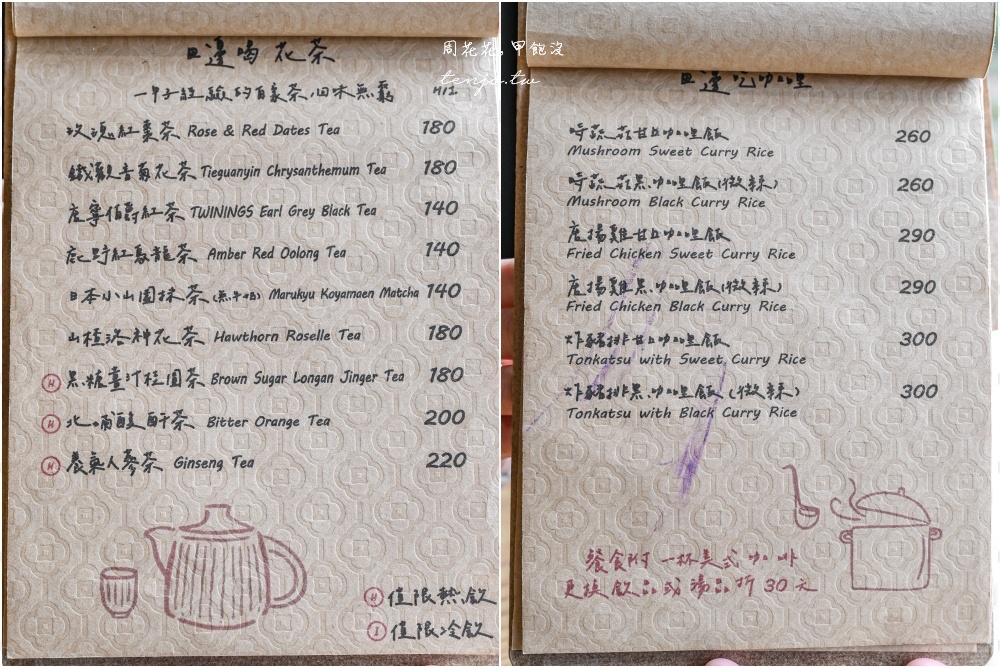 旦邊喝花茶
一甲子經驗的自家茶,回味無窮 H/I
玫瑰紅棗茶 Rose & Red Dates Tea 180
鐵灌音菊花茶 Tieguanyin Chrysanthemum Tea 180
唐寧伯爵紅茶 TWININGS Earl Grey Black Tea 140
鹿野紅烏龍茶 Amber Red Oolong Tea 140
日本小山園抹茶(無牛奶) Marukyu Koyamaen Matcha 140
山楂洛神花茶 Hawthorn Roselle Tea 180
H 黑糖薑汁桂圓茶 Brown Sugar Longan Jinger Tea 180
H 北埔酸酐茶 Bitter Orange Tea 200
H 養氣人蔘茶 Ginseng Tea 220
H 值限熱飲
I 值限冷飲
周花花,甲飽沒
tenjo.tw
旦邊吃咖哩
時蔬菇甘口咖哩飯 260
Mushroom Sweet Curry Rice
時蔬菇黑咖哩飯(微辣) 260
Mushroom Black Curry Rice
唐揚雞甘口咖哩飯 290
Fried Chicken Sweet Curry Rice
唐揚雞黑咖哩飯(微辣) 290
Fried Chicken Black Curry Rice
炸豬排甘口咖哩飯 300
Tonkatsu with Sweet Curry Rice
炸豬排黑咖哩飯(微辣) 300
Tonkatsu with Black Curry Rice
餐食附一杯美式咖啡
更換飲品或湯品折30元